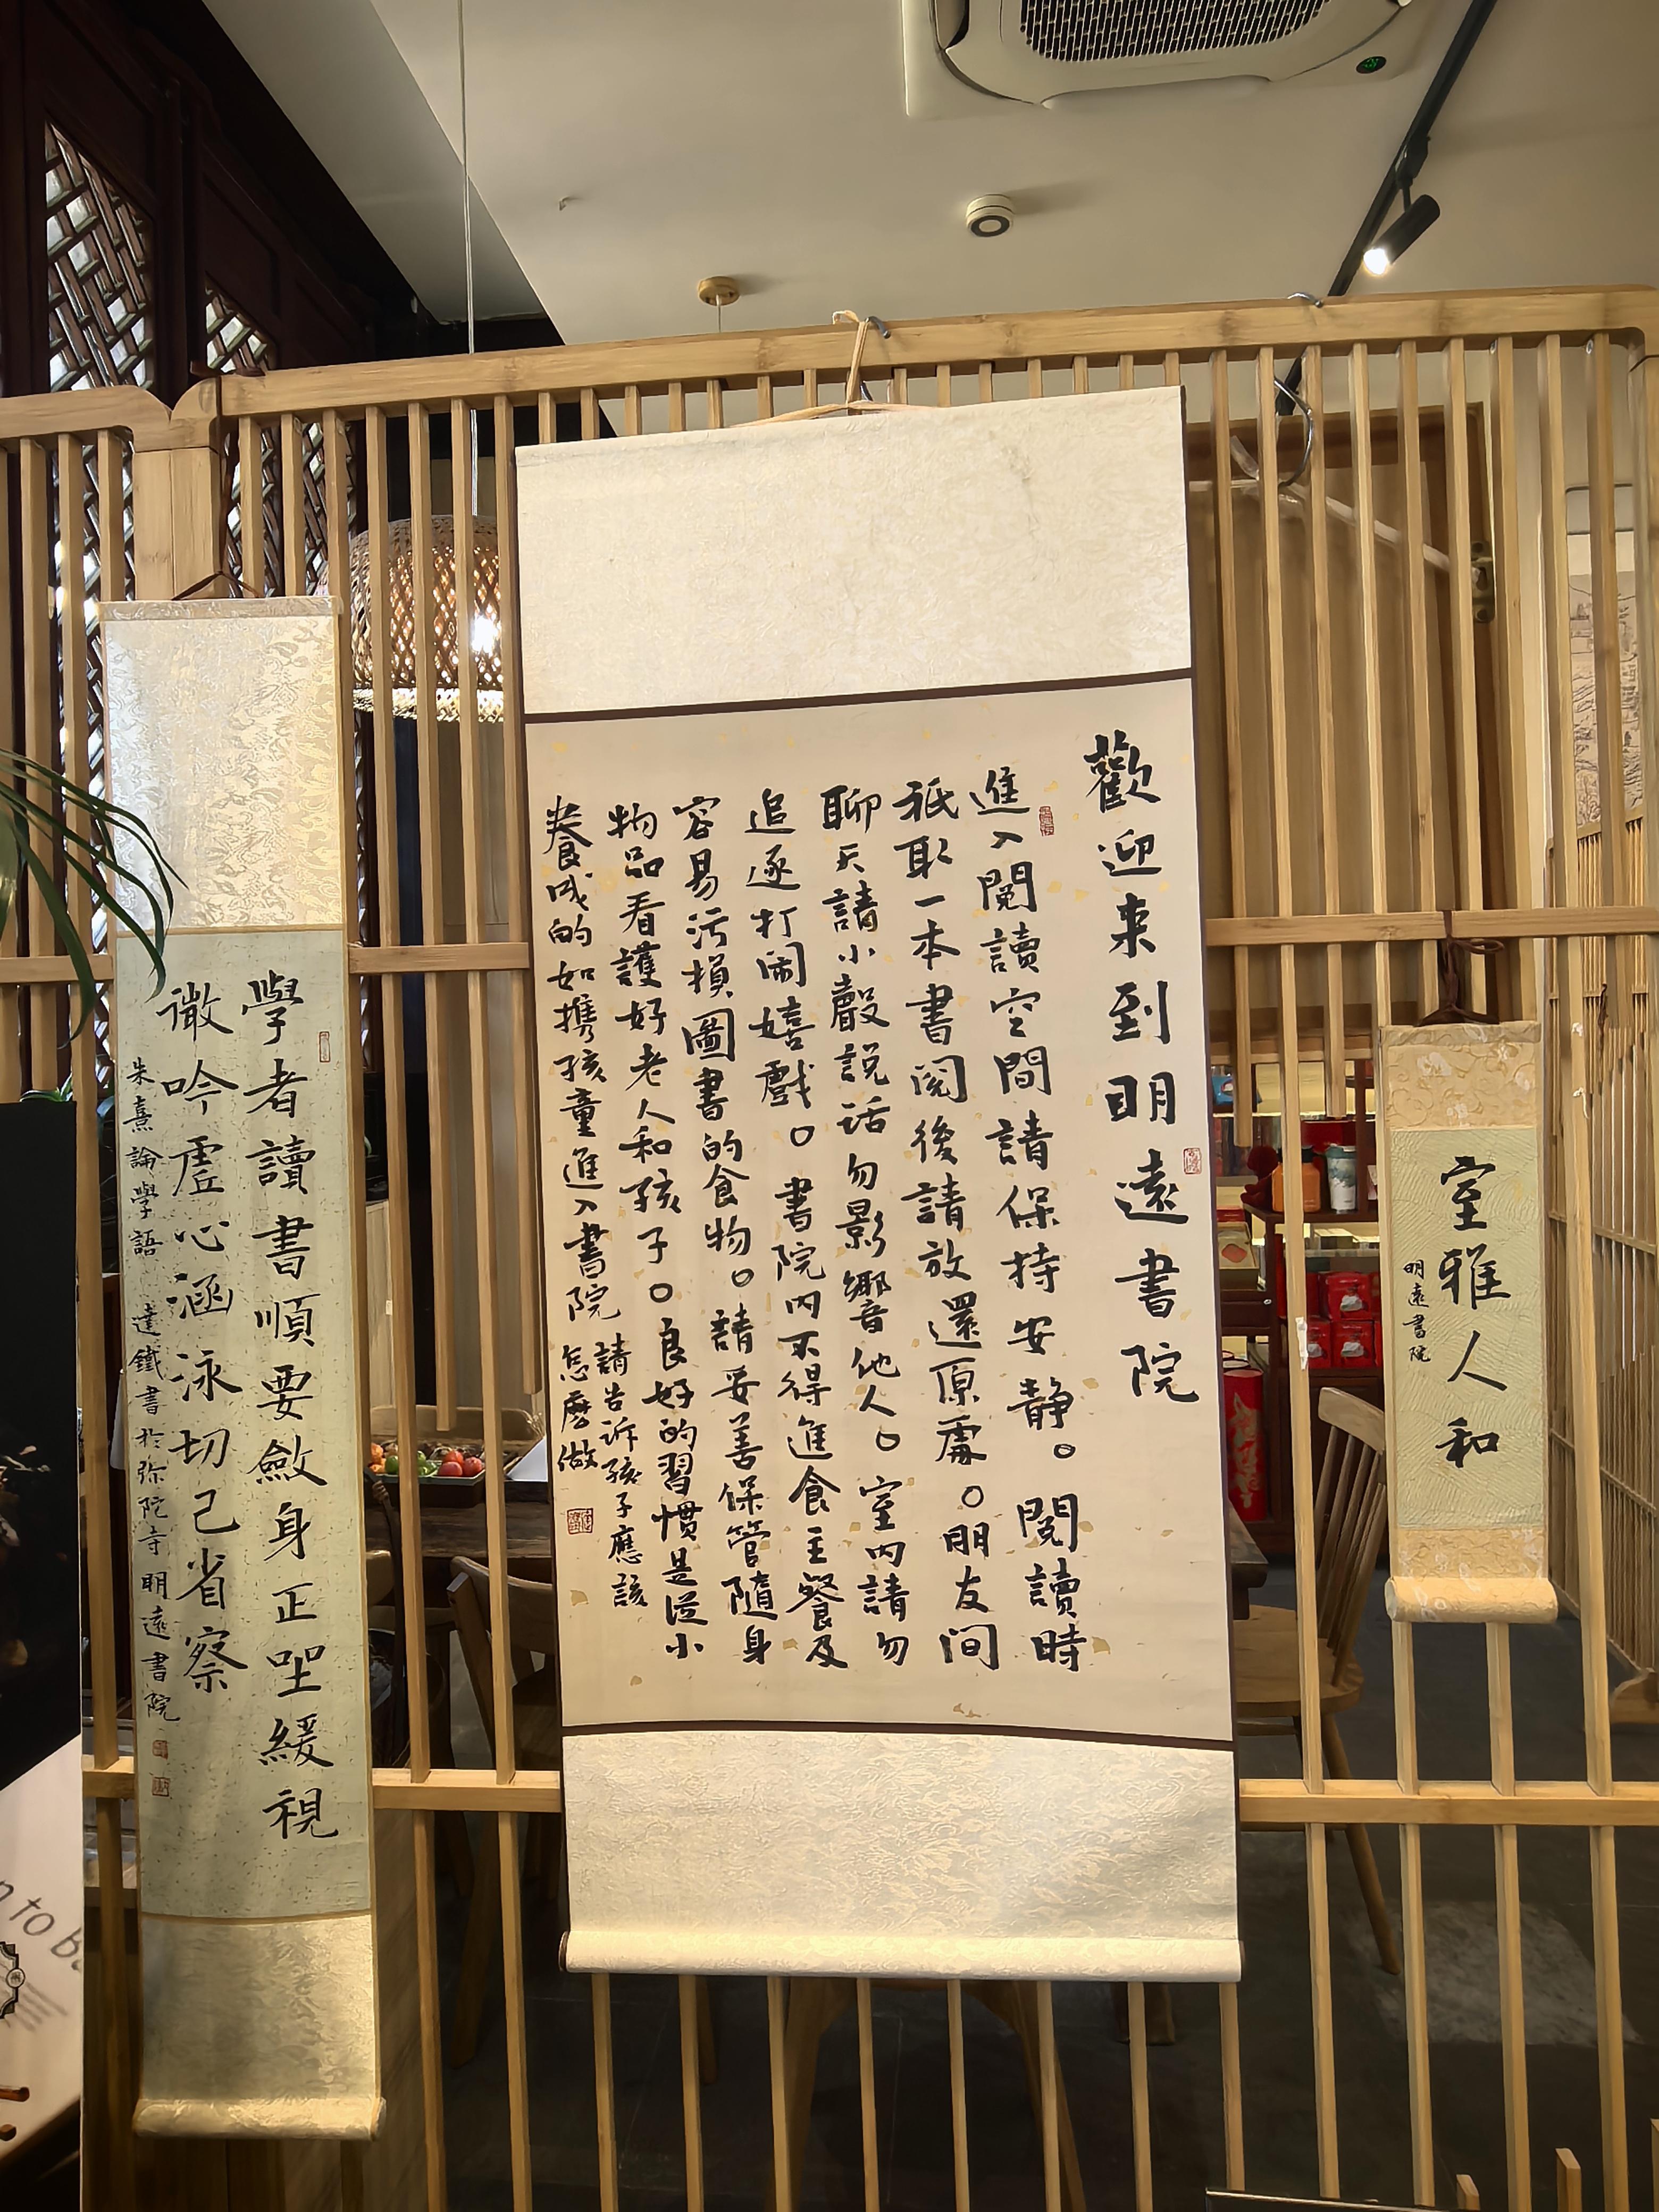 歡迎来到明遠書院
進入閱讀空間請保持安静。閱讀時
祇取一本書閱後請放還原處。朋友间
聊天請小聲説话勿影響他人。室内請勿
追逐打闹嬉戲。書院内不得進食主餐及
容易污損圖書的食物。請妥善保管隨身
物品看護好老人和孩子。良好的習慣是從小
養成的如携孩童進入書院
請告诉孩子應該
怎麽做
學者讀書順要斂身正坐緩視
微吟虚心涵泳切己省察
朱熹論學語 達鐵書於弥陀寺明遠書院
室雅人和
明遠書院
n to b